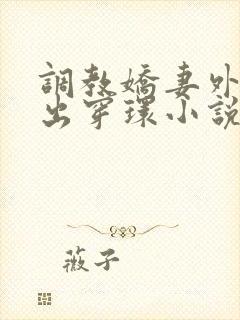 調教嬌妻外
出穿環小說
薇子